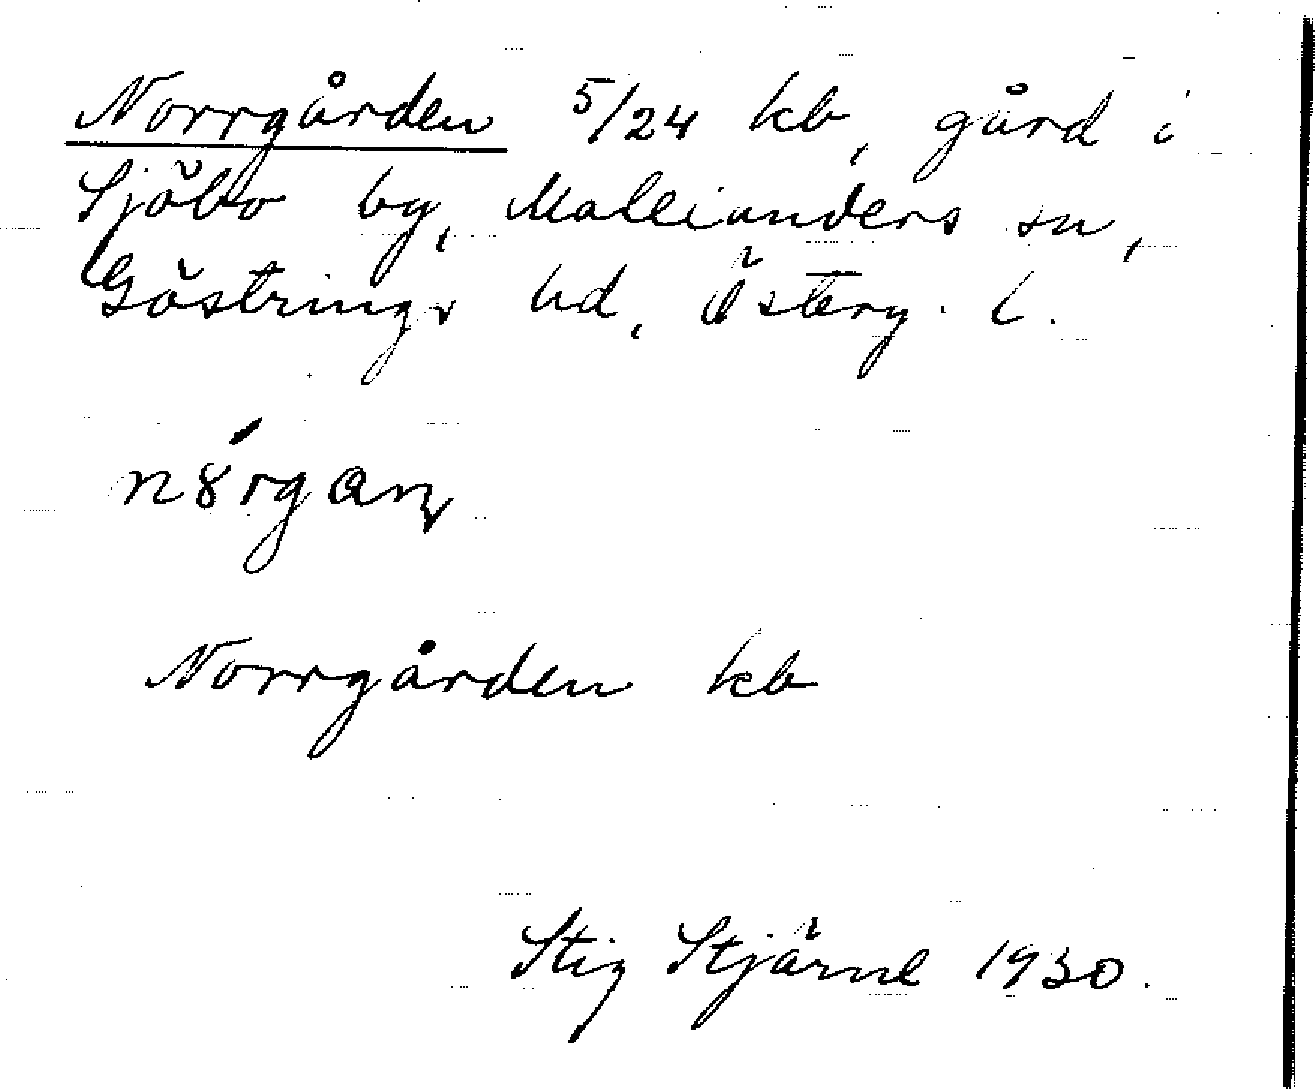 Norrgården 5/24 kb, gård i
Sjöbo by, Mallianders sn,
Göstrings hd, Österg. l.
Norrgården kb
Stig Stjärne 1930.